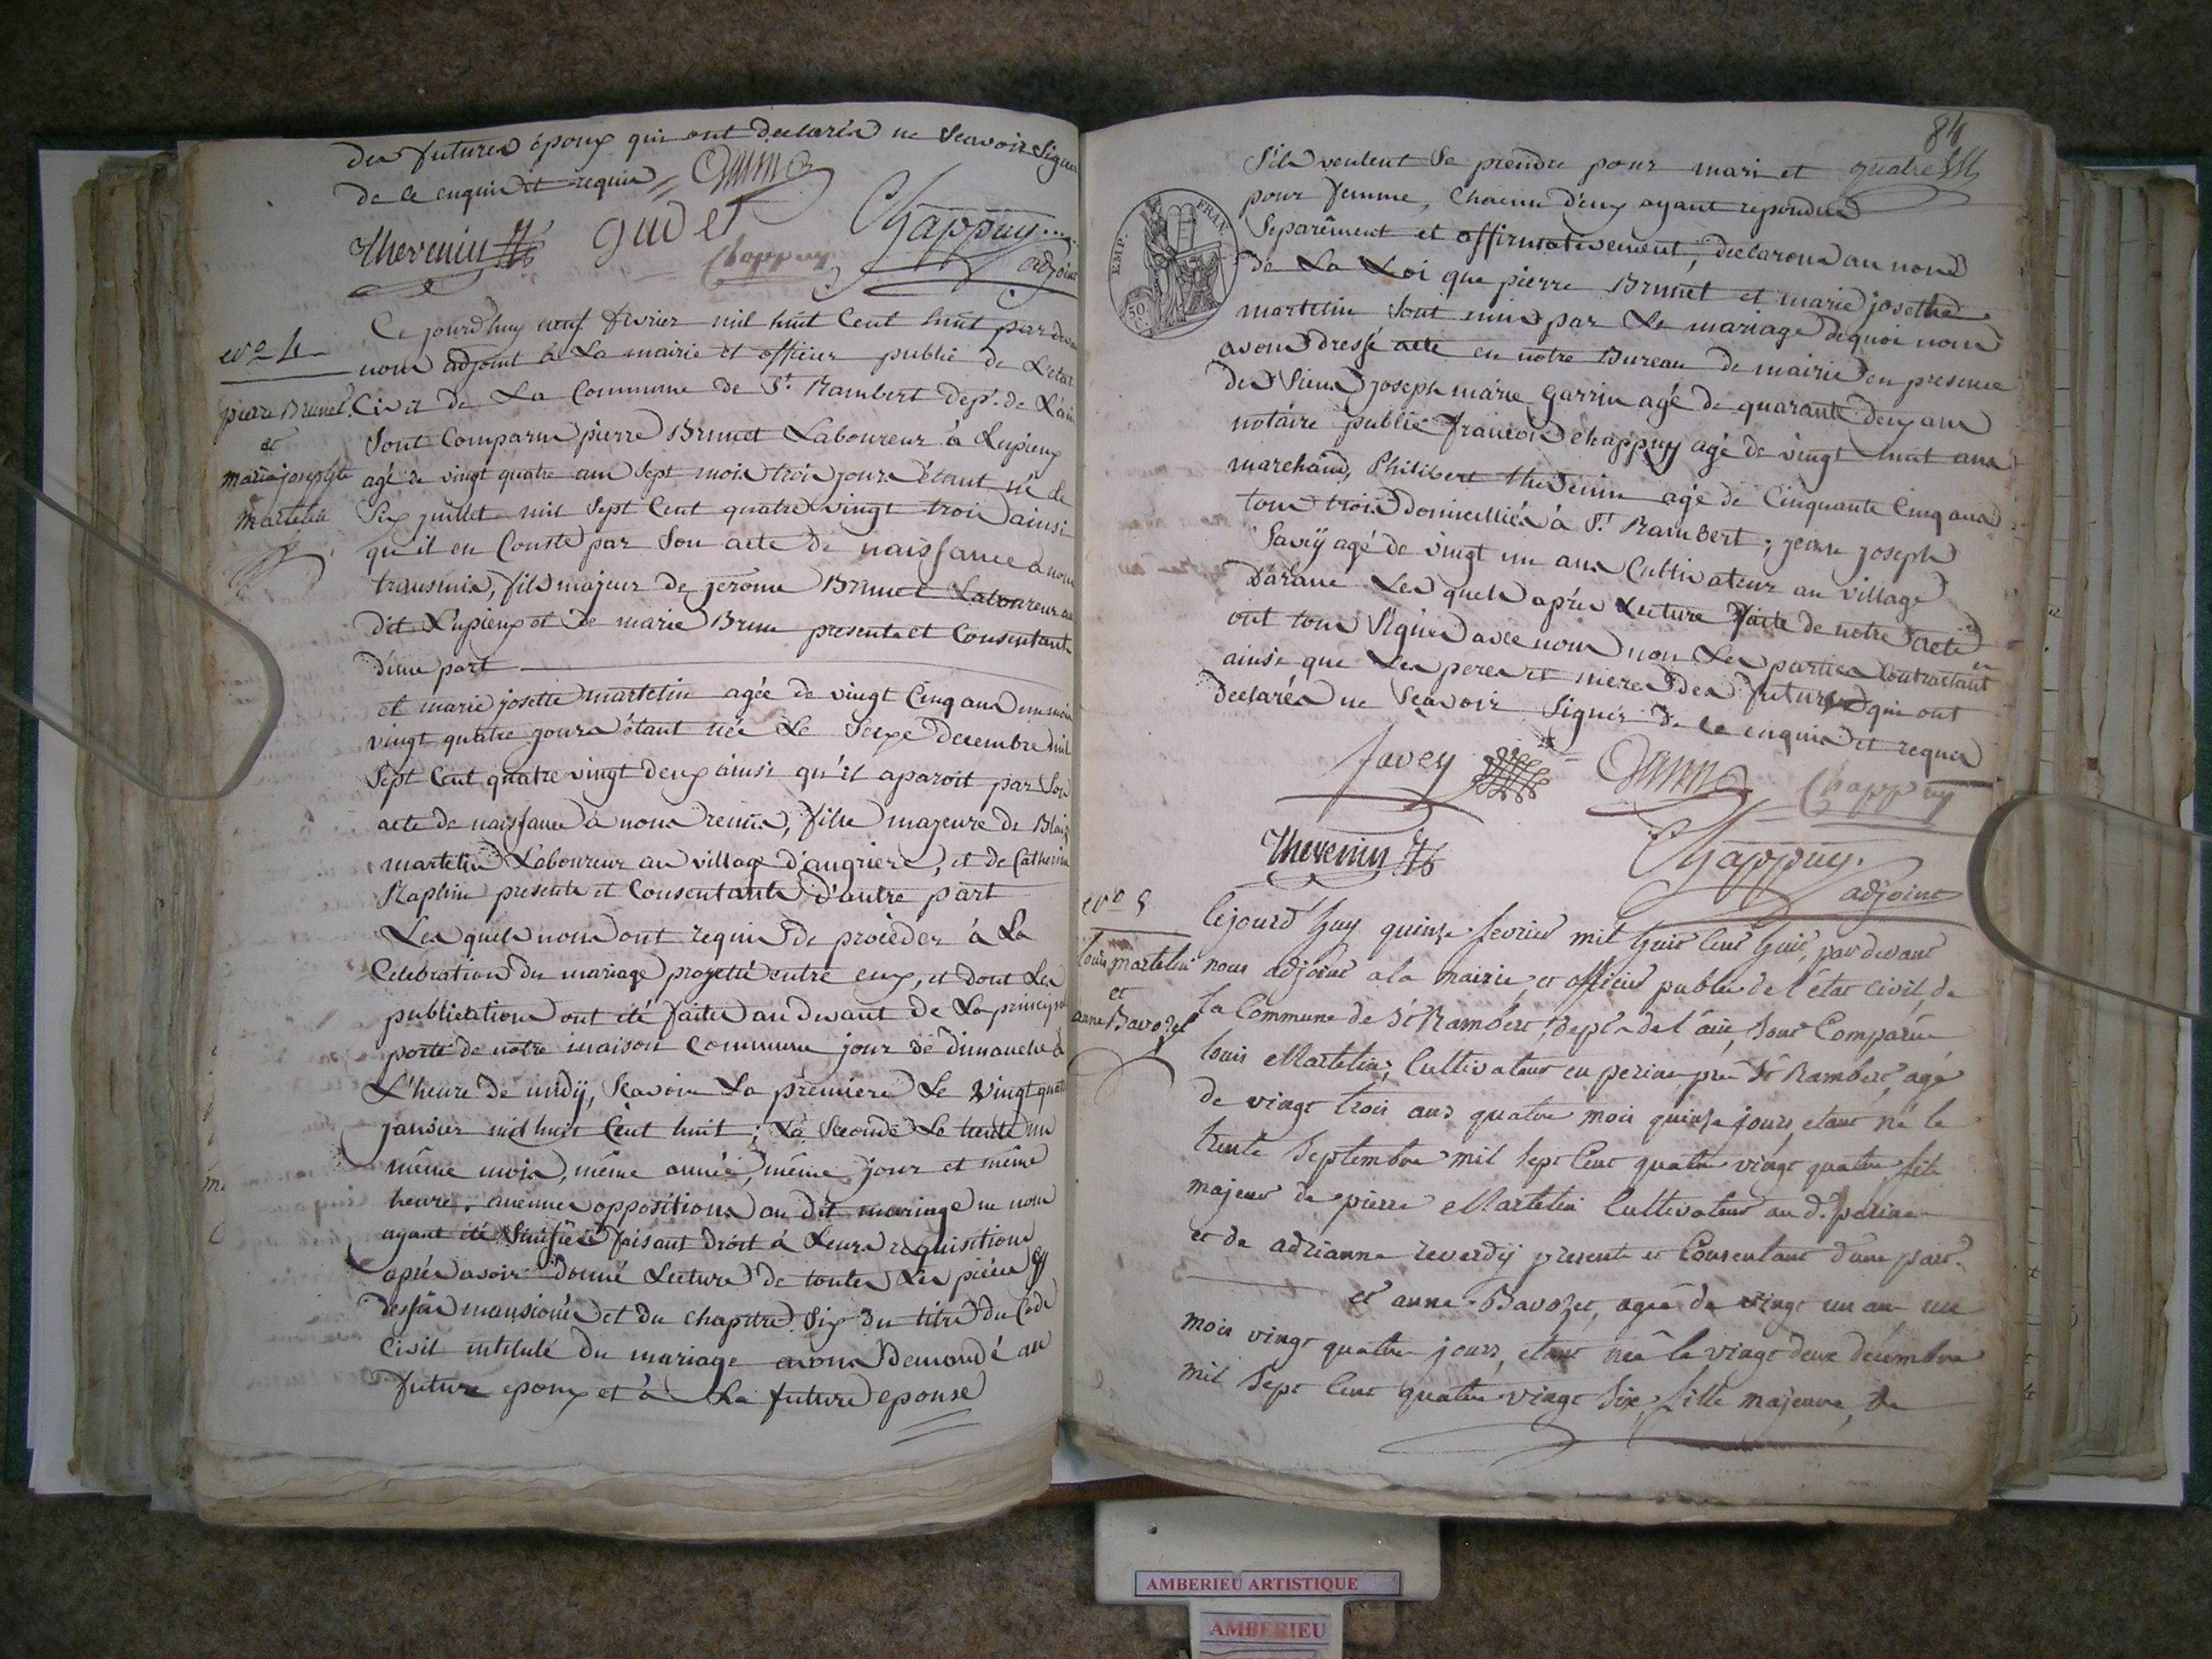 des futures époux qui ont declarés ne Scavoir Signer
de ce enquis et requis
Thevenin gudet Chappuy
Chappuy adjoint
Ce jourd'huy neuf fevrier mil huit Cent huit par devant
nous adjoint à La mairie et officier public de L'etat
Civil de La Commune de St. Rambert dept. de L'ain
Sont Comparu pierre Brunet Laboureur à Lupieux
agé de vingt quatre ans Sept mois trois jours étant né le
Six juillet mil Sept Cent quatre vingt trois ainsi
qu'il en Conste par Son acte de naissance à nous
transmis, fils majeur de jerôme Brunet Laboureur au
dit Lupieux et de marie Brun presents et Consentants
d'une part
et marie josette martelin agée de vingt Cinq ans un mois
vingt quatre jours étant née Le Seize decembre mil
Sept Cent quatre vingt deux ainsi qu'il aparoit par Son
acte de naissance à nous remis, fille majeure de Blaise
martelin Laboureur au village d'angrieres, et de Catherine
Raphin presents et Consentants d'autre part
Les quels nous ont requis de procéder à La
Celebration du mariage projetté entre eux, et dont Les
publications ont été faites au devant de La principale
porte de notre maison Commune jour de dimanche à
L'heure de midÿ, Scavoir La premiere Le vingt quatre
janvier mil huit Cent huit; La Seconde Le trente un
même mois, même année, même jour et même
heure, aucunes oppositions au dit mariage ne nous
ayant été Sinifiées faisant droit à Leurs requisitions
après avoir donné Lecture de toutes Les pièces cy
dessus mansionées et du chapitre Six du titre du Code
Civil intitulé du mariage avons Demandé au
future epoux et à La future epouse
No 4
pierre Brunet
et
marie josephte
Martelin
84
quatre
S'ils veulent Se prendre pour mari et
pour femme, Chacun d'eux ayant repondus
Separêment et affirmativement, declarons au nom
de La Loi que pierre Brunet et marie josethe
martelin Sont unis par Le mariage dequoi nous
avons dressé acte en notre Bureau de mairie en presence
des Sieurs joseph marie Garrin agé de quarante deux ans
notaire public francois chappuy agé de vingt huit ans
marchand, Philibert thevenin agé de Cinquante Cinq ans
tous trois domicilliés à St. Rambert; jean joseph
Savey agé de vingt un ans Cultivateur au village
Darane Les quels après Lecture faite de notre acte
ont tous Signés avec nous non Les parties Contractant
ainsi que Les peres et meres des futures qui ont
declarés ne Scavoir Signer de ce enquis et requis
EMP. FRAN.
50
C.
Savey Chappuy
Thevenin Chappuy.
adjoint
No 5
Louis martelin
et
anne Bavozet
Cejourd'huy quinze fevrier mil huit Cent huit, par devant
nous adjoint a la mairie, et officier public de l'état civil de
la Commune de St Rambert, dept de l'ain, sont Comparu
Louis Martelin, Cultivateur en perine près St Rambert, agé
de vingt trois ans quatre mois quinze jours, etant né le
trente Septembre mil Sept Cent quatre vingt quatre fils
majeur de pierre Martelin Cultivateur au d. perine
et de adrianne reverdÿ presents et Consentant d'une part.
et anne Bavozet, agée de vingt un ans un
mois vingt quatre jours, étant née le vingt deux decembre
mil Sept Cent quatre vingt Six, fille majeure, de
AMBERIEU ARTISTIQUE
AMBERIEU